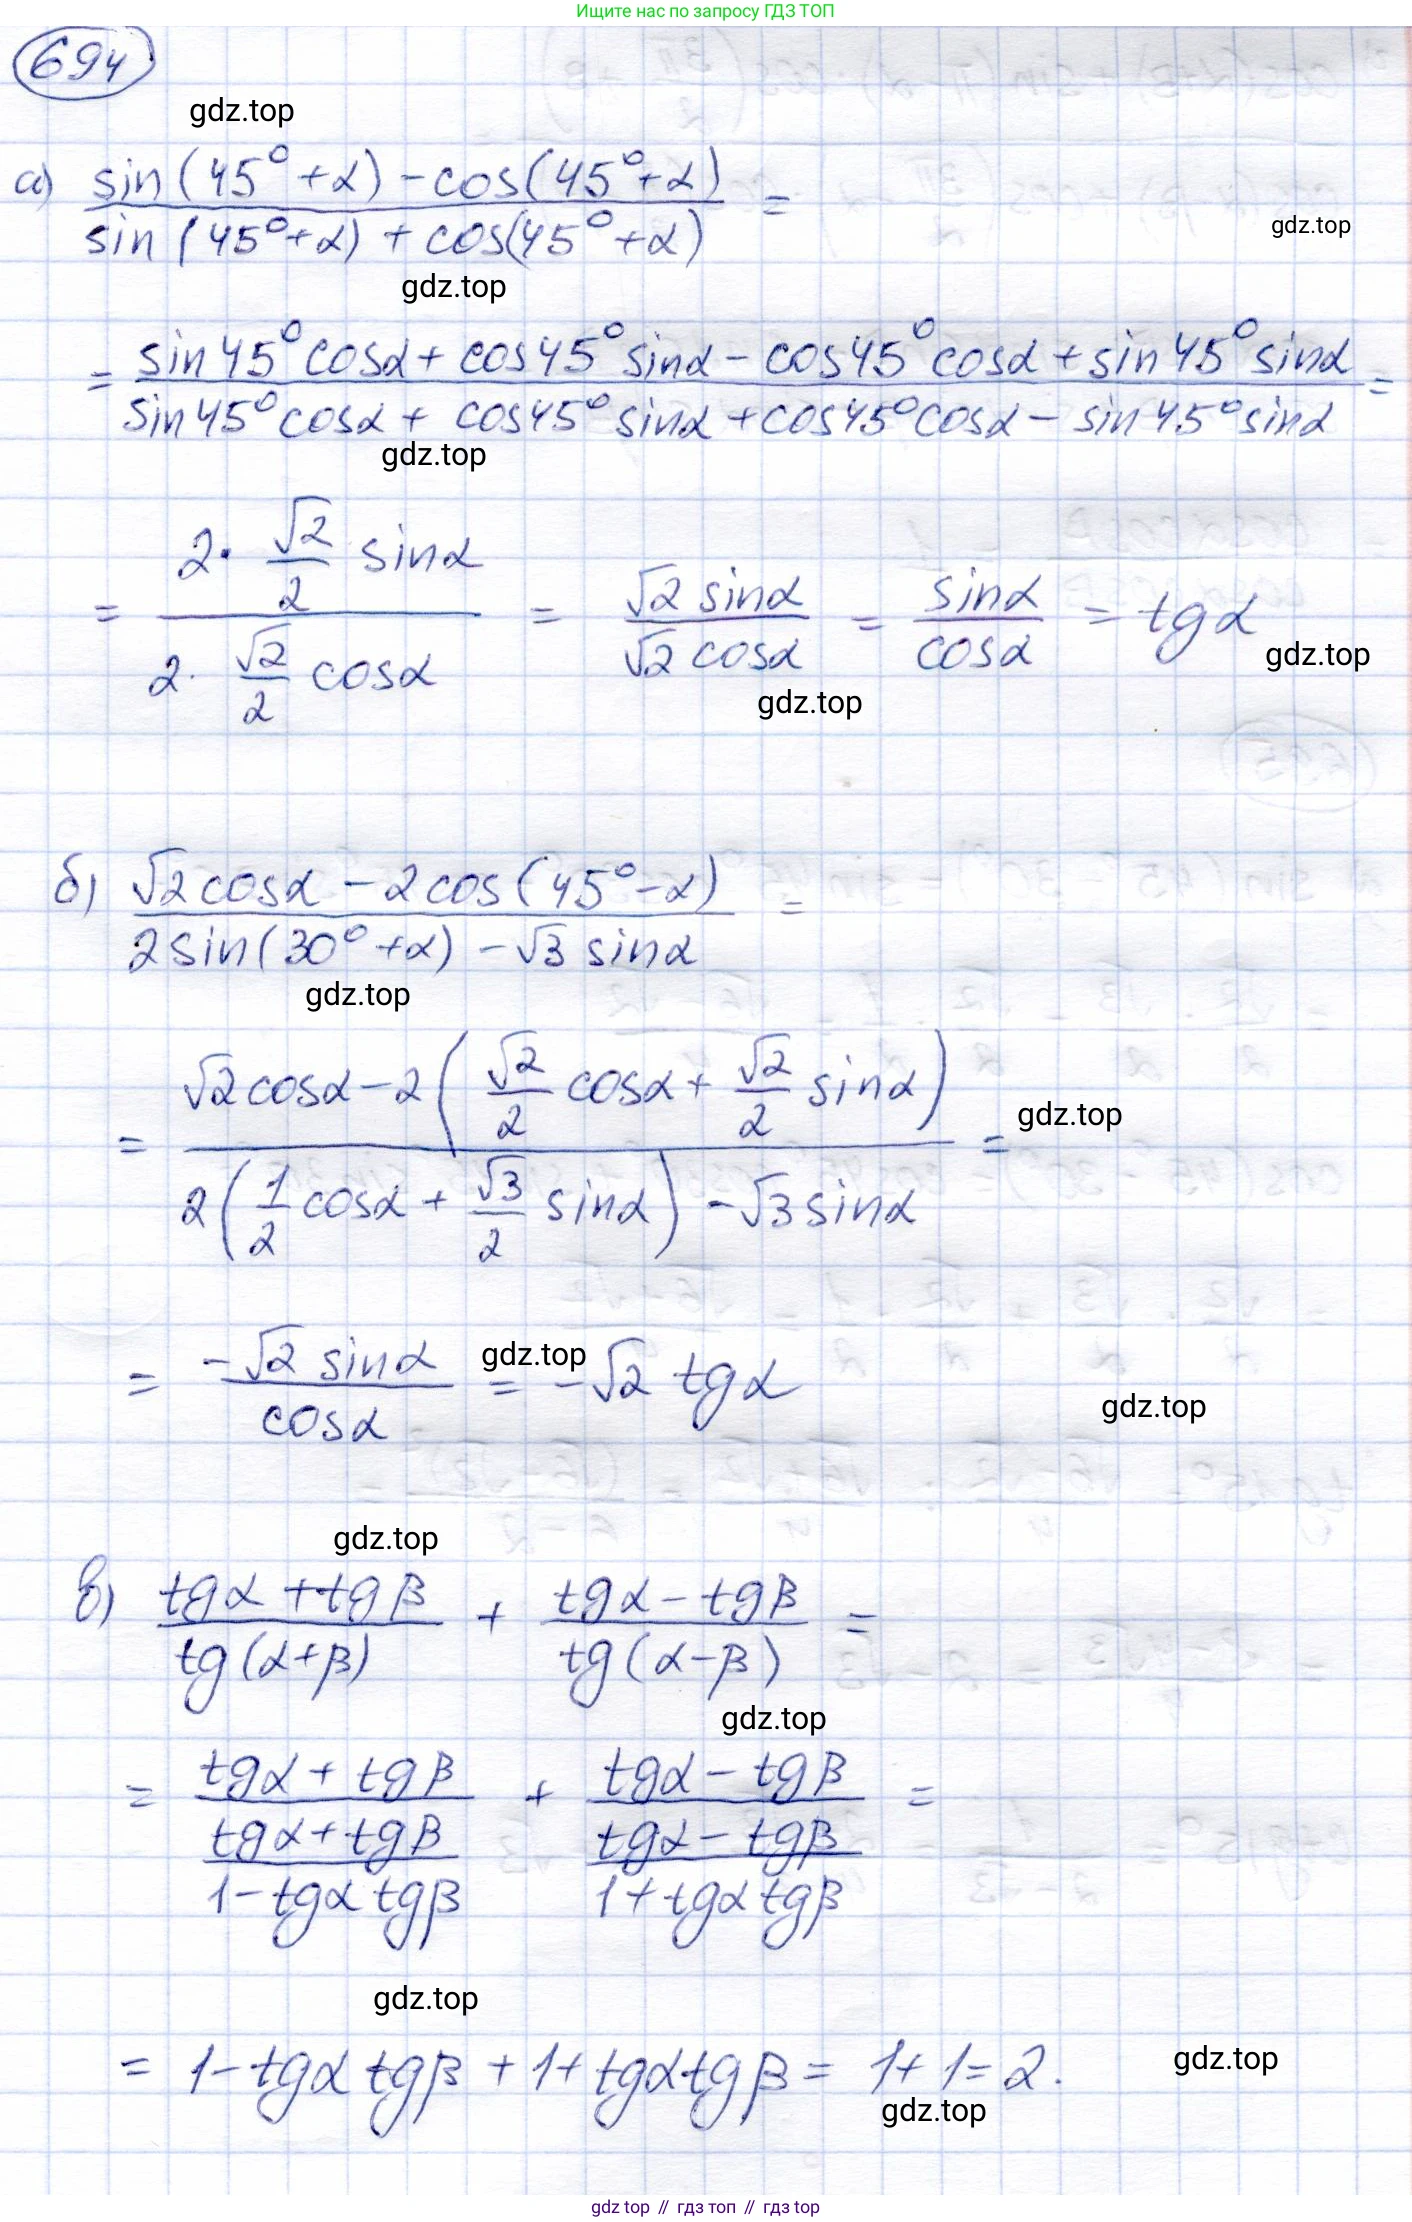 Ищите нас по запросу ГДЗ ТОП
694
gdz.top
а) sin(45°+α)-cos(45°+α) =
sin(45°+α)+cos(45°+α)
gdz.top
gdz.top
= sin45°cosα+cos45°sinα-cos45°cosα+sin45°sinα =
sin45°cosα+cos45°sinα+cos45°cosα-sin45°sinα
gdz.top
= 2·√2/2 sinα / 2·√2/2 cosα = √2 sinα / √2 cosα = sinα / cosα = tgα
gdz.top
gdz.top
б) √2cosα-2cos(45°-α) =
2sin(30°+α)-√3 sinα
gdz.top
= √2cosα-2(√2/2 cosα+√2/2 sinα) =
gdz.top
2(1/2 cosα+√3/2 sinα)-√3sinα
= -√2 sinα / cosα = -√2 tgα
gdz.top
gdz.top
gdz.top
в) tgα+tgβ / tg(α+β) + tgα-tgβ / tg(α-β) =
gdz.top
= tgα+tgβ + tgα-tgβ =
tgα+tgβ tgα-tgβ
1-tgα tgβ 1+tgα tgβ
gdz.top
= 1-tgα tgβ+1+tgαtgβ= 1+1=2.
gdz.top
gdz.top
gdz top // гдз топ // гдз top